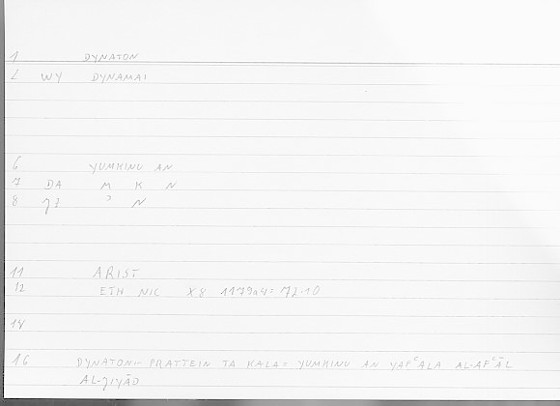 1 DYNATON
2 WY DYNAMAI
6 YUMKINU AN
7 DA M K N
8 ʾ N
11 ARIST
12 ETH NIC X8 1179a4=
14
16 DYNATON- PRATTEIN TA KALA= YUMKINU AN YAFʿALA AL-AFʿĀL
AL-JIYĀD